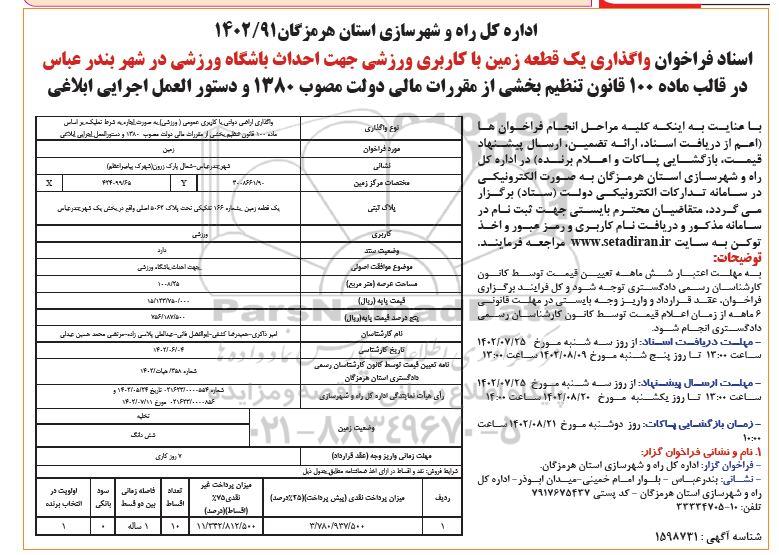 اداره کل راه و شهرسازی استان هرمزگان۱۴۰۲/۹۱
اسناد فراخوان واگذاری یک قطعه زمین با کاربری ورزشی جهت احداث باشگاه ورزشی در شهر بندر عباس
در قالب ماده ۱۰۰ قانون تنظیم بخشی از مقررات مالی دولت مصوب ۱۳۸۰ و دستور العمل اجرایی ابلاغی
با عنایت به اینکه کلیه مراحل انجام فراخوان ها
(اعم از دریافت اسناد، ارائه تضمین، ارسال پیشنهاد
قیمت، بازگشایی پاکات و اعلام برنده) در اداره کل
راه و شهرسازی استان هرمزگان به صورت الکترونیکی
در سامانه تدارکات الکترونیکی دولت (ستاد) برگزار
می گردد، متقاضیان محترم بایستی جهت ثبت نام در
سامانه مذکور و دریافت نام کاربری و رمز عبور و اخذ
توکن به سایت www.setadiran.ir مراجعه فرمایند.
توضیحات:
به مهلت اعتبار شش ماهه تعیین قیمت توسط کانون
کارشناسان رسمی دادگستری توجه شود و کل فرایند برگزاری
فراخوان، عقد قرارداد و واریز وجه بایستی در مهلت قانونی
۶ ماهه از زمان اعلام قیمت توسط کانون کارشناسان رسمی
دادگستری انجام شود.
- مهلت دریافت اسناد: از روز سه شنبه مورخ ۱۴۰۲/۰۷/۲۵
ساعت ۱۳:۰۰ تا روز پنج شنبه مورخ ۱۴۰۲/۰۸/۰۹ ساعت ۱۳:۰۰
- مهلت ارسال پیشنهاد: از روز سه شنبه مورخ ۱۴۰۲/۰۷/۲۵
ساعت ۱۳:۰۰ تا روز یکشنبه مورخ ۱۴۰۲/۰۸/۲۰ ساعت ۱۴:۰۰
- زمان بازگشایی پاکات: روز دوشنبه مورخ ۱۴۰۲/۰۸/۲۱ ساعت
۱۰:۰۰
۱. نام و نشانی فراخوان گزار:
- فراخوان گزار: اداره کل راه و شهرسازی استان هرمزگان.
- نشانی: بندرعباس - بلوار امام خمینی-میدان ابوذر- اداره کل
راه و شهرسازی استان هرمزگان - کد پستی ۷۹۱۷۶۷۵۴۳۷
تلفن: ۱۰-۳۳۳۳۴۷۰۵
شناسه آگهی : ۱۵۹۸۷۳۱
نوع واگذاری واگذاری اراضی دولتی با کاربری عمومی ( ورزشی) به صورت اجاره به شرط تملیک بر اساس
ماده ۱۰۰ قانون تنظیم بخشی از مقررات مالی دولت مصوب ۱۳۸۰ و دستورالعمل اجرایی ابلاغی
مورد فراخوان زمین
نشانی شهربندرعباس-شمال پارک زرون(شهرک پیامبراعظم)
مختصات مرکز زمین Y X
پلاک ثبتی یک قطعه زمین بشماره ۱۶۶ تفکیکی تحت پلاک ۵۰۶۳ اصلی واقع در بخش یک شهر بندرعباس
کاربری ورزشی
وضعیت سند دارد
موضوع موافقت اصولی جهت احداث باشگاه ورزشی
مساحت عرصه (متر مربع) ۱۰۰۸/۲۵
قیمت پایه (ریال) ۱۵/۱۲۳/۷۵۰/۰۰۰
پنج درصد قیمت پایه(ریال) ۷۵۶/۱۸۷/۵۰۰
نام کارشناسان
تاریخ کارشناسی ۱۴۰۲/۰۶/۰۴
نامه تعیین قیمت توسط کانون کارشناسان رسمی
دادگستری استان هرمزگان شماره ۳۵۸/هیات/۱۴۰۲
رأی هیأت نمایندگی اداره کل راه و شهرسازی
وضعیت زمین تخلیه
شش دانگ
مهلت زمانی واریز وجه (عقد قرارداد) ۷ روز کاری
شرایط فروش: نقد و اقساط در ازای اخذ ضمانتنامه مطابق جدول ذیل
ردیف میزان پرداخت نقدی (پیش پرداخت)(۲۵٪درصد) میزان پرداخت غیر نقدی۷۵٪ (اقساط)(درصد) تعداد اقساط فاصله زمانی بین دو قسط سود بانکی اولویت در انتخاب برنده
۱ ۳/۷۸۰/۹۳۷/۵۰۰ ۱۱/۳۴۲/۸۱۲/۵۰۰ ۱۰ ۱ ساله ۰ ۱
۰۲۱-۸۸۳۴۹۶۷۰-۵